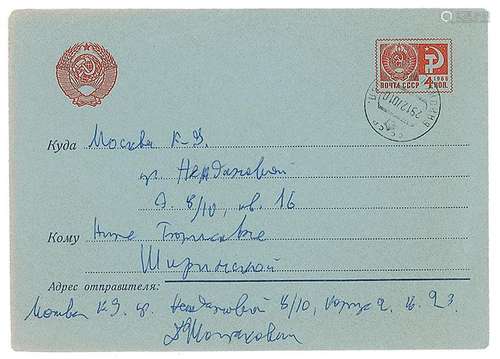 ПОЧТА СССР 1966 4 КОП.
Куда Москва К-9.
ул. Неждановой
д. 8/10, кв. 16
Кому Нине Борисовне
Ширинской
Адрес отправителя:
Москва К-9. ул. Неждановой 8/10, корпус 2, кв. 23
ДШостакович